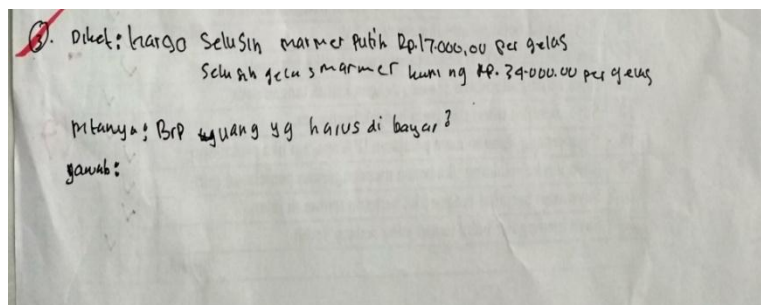 ③. Diket: hargo Selusin marmer Putih Rp.17.000,00 Per gelas
Selusin gelas marmer kuning Rp. 34.000.00 per gelas
Ditanya: Brp uang yg harus di bayar?
Jawab: